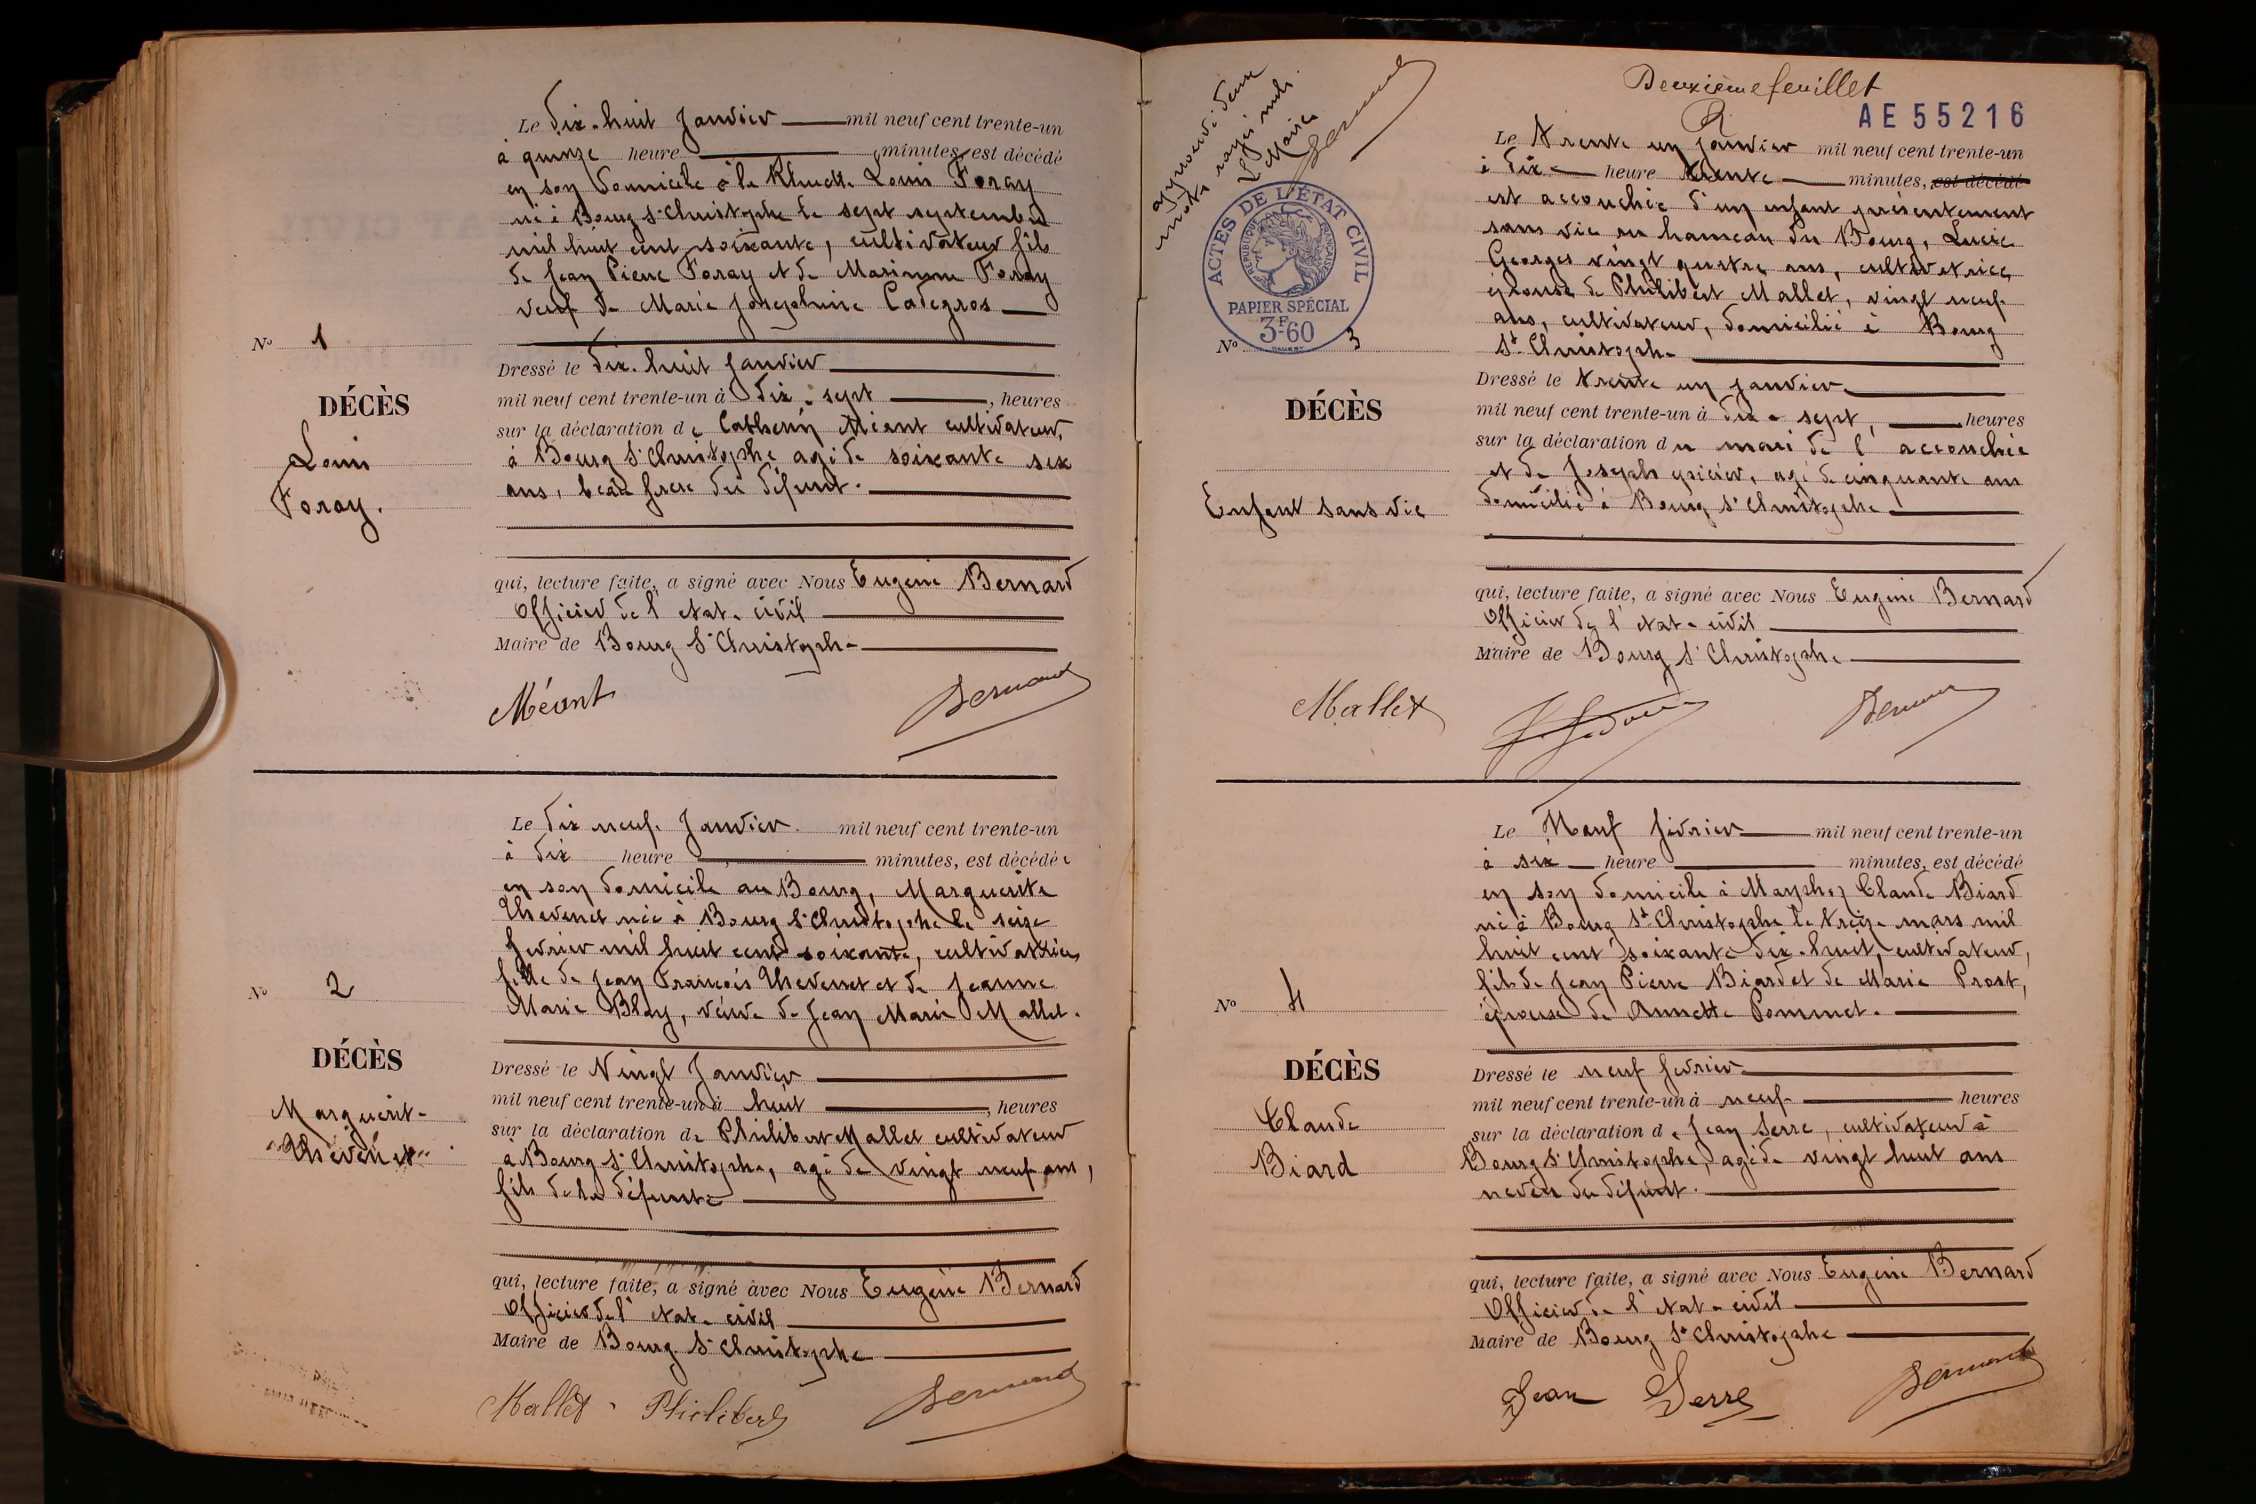 Le dix-huit Janvier mil neuf cent trente-un
à quinze heure minutes, est décédé
en son domicile à la Louis Foray
né à Bourg St Christophe le sept septembre
mil huit cent soixante, cultivateur fils
de Jean Pierre Foray et de Marianne Foray
veuf de Marie Josephine Cadegros
No 1
Dressé le dix-huit Janvier
mil neuf cent trente-un à dix-sept, heures
DÉCÈS
sur la déclaration de Catherin Méant cultivateur,
Louis
à Bourg St Christophe agé de soixante six
Foray.
ans, beau frere du défunt.
qui, lecture faite, a signé avec Nous Eugène Bernard
Officier de l'etat-civil
Maire de Bourg St Christophe
Méant Bernard
Le dix neuf Janvier mil neuf cent trente-un
à dix heure minutes, est décédée
en son domicile au Bourg, Marguerite
Thevenet née à Bourg St Christophe le seize
fevrier mil huit cent soixante, cultivatrice,
fille de Jean François Thevenet et de Jeanne
No 2
Marie Blay, veuve de Jean Marie Mallet.
Dressé le Vingt Janvier
DÉCÈS
mil neuf cent trente-un à huit, heures
Marguerite
sur la déclaration de Philibert Mallet cultivateur
Thévenet
à Bourg St Christophe, agé de vingt neuf ans,
fils de la défunte
qui, lecture faite, a signé avec Nous Eugène Bernard
Officier de l'etat-civil
Maire de Bourg St Christophe
Mallet Philibert Bernard
Deuxième feuillet
AE 55216
approuvé deux
mots rayés nuls.
Le Maire
Bernard
ACTES DE L'ÉTAT CIVIL
RÉPUBLIQUE FRANÇAISE
PAPIER SPÉCIAL
3F60
Le trente un janvier mil neuf cent trente-un
à dix heure trente minutes, est décédé
est accouchée d'un enfant présentement
sans vie au hameau du Bourg, Lucie
Georges vingt quatre ans, cultivatrice,
épouse de Philibert Mallet, vingt neuf
ans, cultivateur, domicilié à Bourg
No 3
St Christophe
Dressé le trente un janvier
DÉCÈS
mil neuf cent trente-un à dix-sept, heures
sur la déclaration du mari de l'accouchée
et de Joseph agé de cinquante ans
Enfant sans vie
domicilié à Bourg St Christophe
qui, lecture faite, a signé avec Nous Eugène Bernard
Officier de l'etat-civil
Maire de Bourg St Christophe
Mallet Bernard
Le Neuf février mil neuf cent trente-un
à six heure minutes, est décédé
en son domicile à Claude Biard
né à Bourg St Christophe le treize mars mil
huit cent soixante dix-huit, cultivateur,
fils de Jean Pierre Biard et de Marie Prost,
No 4
épouse de Annette Pommet.
DÉCÈS
Dressé le neuf fevrier
mil neuf cent trente-un à neuf heures
Claude
sur la déclaration de Jean Serre, cultivateur à
Biard
Bourg St Christophe, agé de vingt huit ans
neveu du défunt.
qui, lecture faite, a signé avec Nous Eugène Bernard
Officier de l'etat-civil
Maire de Bourg St Christophe
Jean Serre Bernard